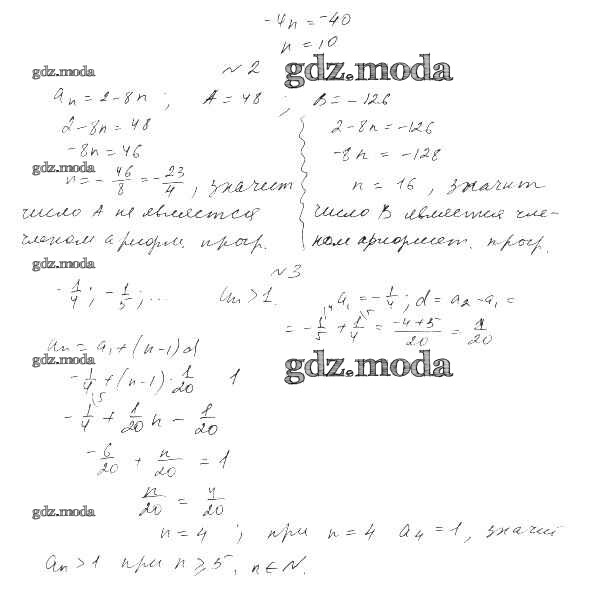 -4n = -40
n = 10
gdz.moda
№ 2
gdz.moda
a_n = 2-8n ; A = 48 ; B = -126
2-8n = 48
-8n = 46
gdz.moda
n = - 46/8 = - 23/4, значит
число A не является
членом арифм. прогр.
2-8n = -126
-8n = -128
n = 16, значит
число B является чле-
ном арифмет. прогр.
gdz.moda
№ 3
-1/4 ; -1/5 ; ... a_n > 1. a_1 = -1/4 ; d = a_2 - a_1 =
= -1/5 + 1/4 = (-4+5)/20 = 1/20
a_n = a_1 + (n-1)d
gdz.moda
gdz.moda
-1/4 + (n-1)·1/20 1
-1/4 + 1/20 n - 1/20
-6/20 + n/20 = 1
n/20 = 4/20
gdz.moda
n = 4 ; при n = 4 a_4 = 1, значит
a_n > 1 при n ⩾ 5, n ∈ N.